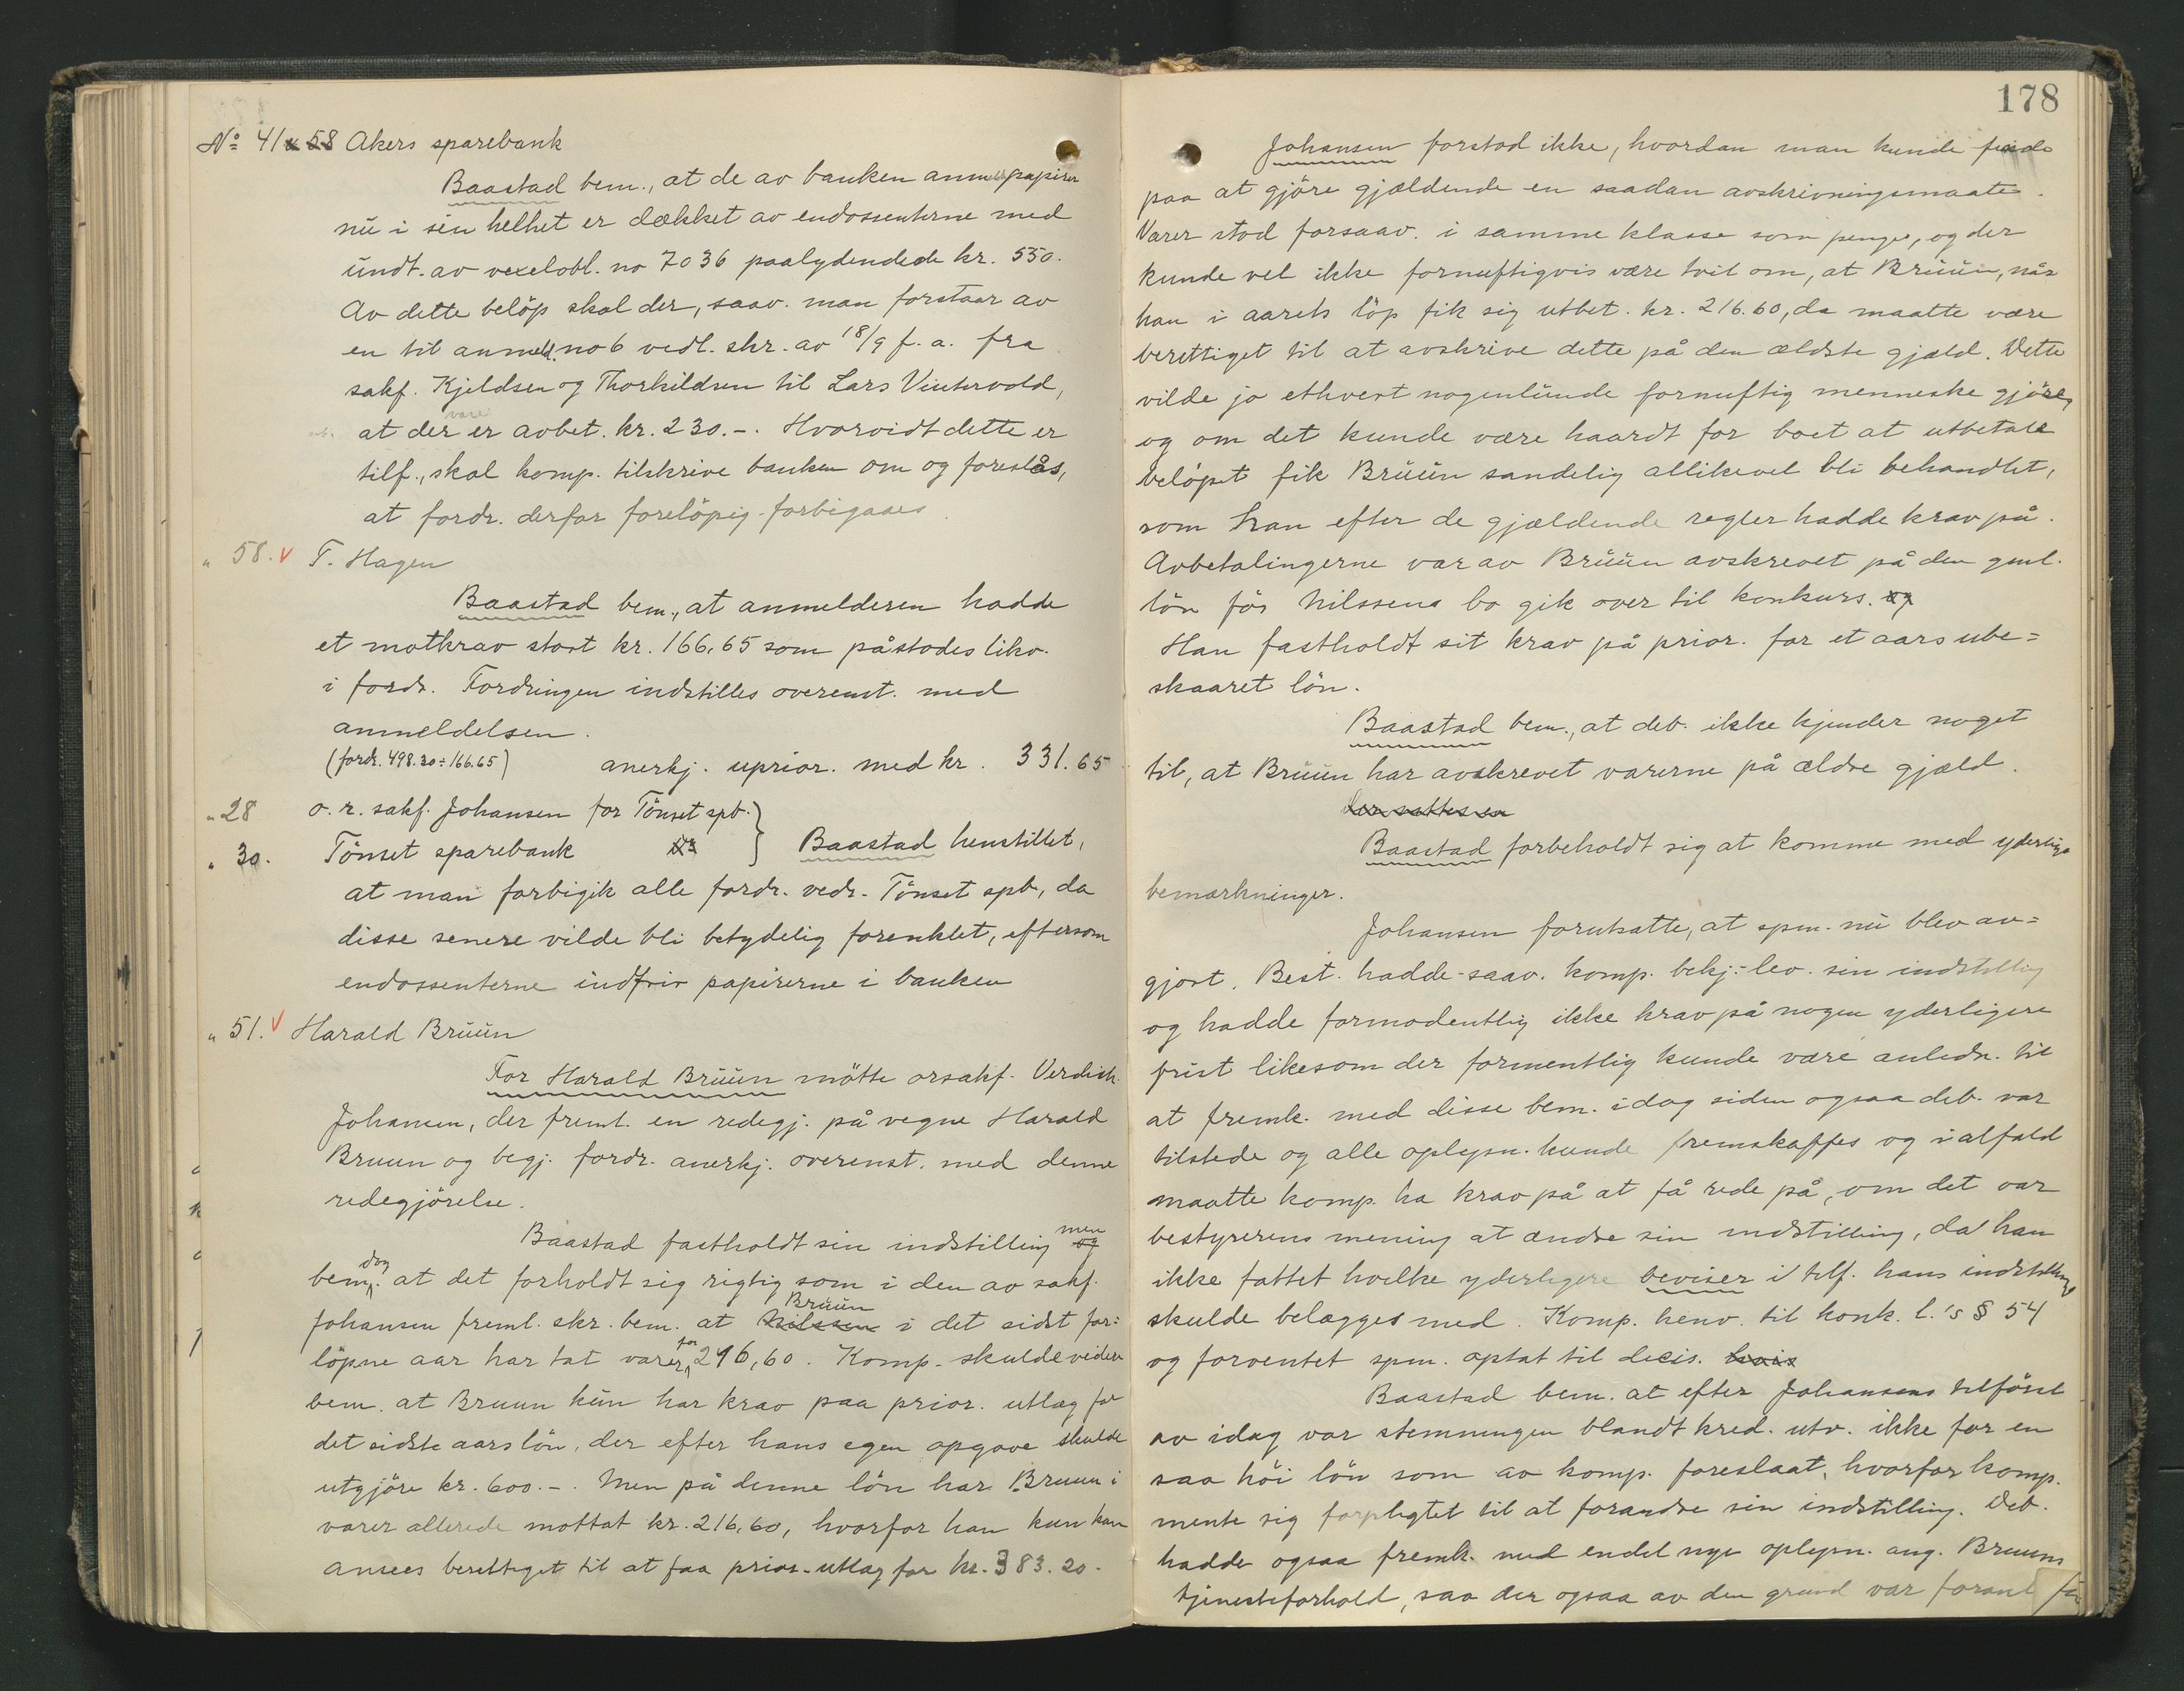 No 41 & 58 Akers sparebank
Baastad bem., at de av banken anm. papirer
nu i sin helhet er dækket av endossenterne med
undt. av vexelobl. no 7036 paalydendede kr. 550.
Av dette beløp skal der, saav. man forstaar av
en til anmeld. no 6 vedl. skr. av 18/9 f. a. fra
sakf. Kjeldsen og Thorkildsen til Lars Vintervold,
at der er være avbet. kr. 230.-. Hvorvidt dette er
tilf., skal komp. tilskrive banken om og foreslås,
at fordr. derfor foreløpig forbigaaes.
" 58. v T. Hagen
Baastad bem., at anmelderen hadde
et motkrav stort kr. 166,65 som påstodes likv.
i fordr. Fordringen indstilles overenst. med
anmeldelsen.
(fordr. 498.30 ÷ 166.65) anerkj. uprior. med kr. 331.65
" 28 o. r. sakf. Johansen for Tönset spb.
" 30. Tönset sparebank } Baastad henstillet,
at man forbigik alle fordr. vedr. Tönset spb, da
disse senere vilde bli betydelig forenklet, eftersom
endossenterne indfrir papirerne i banken
" 51. v Harald Bruun
For Harald Bruun mötte orsakf. Verdich
Johansen, der freml. en redegj. på vegne Harald
Bruun og begj. fordr. anerkj. overenst. med denne
redegjörelse.
Baastad fastholdt sin indstilling og men
bem. dog at det forholdt sig rigtig som i den av sakf.
Johansen freml. skr. bem. at Nilssen Bruun i det sidst for-
löpne aar har tat varer for 216,60. Komp. skulde videre
bem. at Bruun kun har krav paa prior. utlæg for
det sidste aars lön, der efter hans egen opgave skulde
utgjöre kr. 600.-. Men på denne lön har Bruun i
varer allerede mottat kr. 216,60, hvorfor han kun kan
ansees berettiget til at faa prior. utlæg for kr. 383.20.
178
Johansen forstod ikke, hvordan man kunde finde
paa at gjöre gjældende en saadan avskrivningsmaate.
Varer stod forsaav. i samme klasse som penge, og der
kunde vel ikke fornuftigvis være tvil om, at Bruun, når
han i aarets löp fik sig utbet. kr. 216.60, da maatte være
berettiget til at avskrive dette på den ældste gjæld. Dette
vilde jo ethvert nogenlunde fornuftig menneske gjöre,
og om det kunde være haardt for boet at utbetale
belöpet fik Bruun sandelig allikevel bli behandlet,
som han efter de gjældende regler hadde krav på.
Avbetalingerne var av Bruun avskrevet på den gml.
lön för Nilssens bo gik over til konkurs. og
Han fastholdt sit krav på prior. for et aars ube-
skaaret lön.
Baastad bem., at deb. ikke kjender noget
til, at Bruun har avskrevet varerne på ældre gjæld.
Baastad forbeholdt sig at komme med yderlige
bemærkninger.
Johansen forutsatte, at spm. nu blev av-
gjort. Best. hadde - saav. komp. bekj. - lev. sin indstilling
og hadde formodentlig ikke krav på nogen yderligere
frist likesom der formentlig kunde være anledn. til
at fremk. med disse bem. idag siden ogsaa deb. var
tilstede og alle oplysn. kunde fremskaffes og ialfald
maatte komp. ha krav på at få rede på, om det var
bestyrerens mening at ændre sin indstilling, da han
ikke fattet hvilke yderligere beviser i tilf. hans indstilling
skulde belægges med. Komp. henv. til konk. l.'s § 54
og forventet spm. optat til decis. hvis
Baastad bem. at efter Johansens tilförsel
av idag var stemningen blandt kred. utv. ikke for en
saa höi lön som av komp. foreslaat, hvorfor komp.
mente sig forpligtet til at forandre sin indstilling. Deb.
hadde ogsaa fremk. med endel nye oplysn. ang. Bruuns
tjenesteforhold, saa der ogsaa av den grund var foranl.